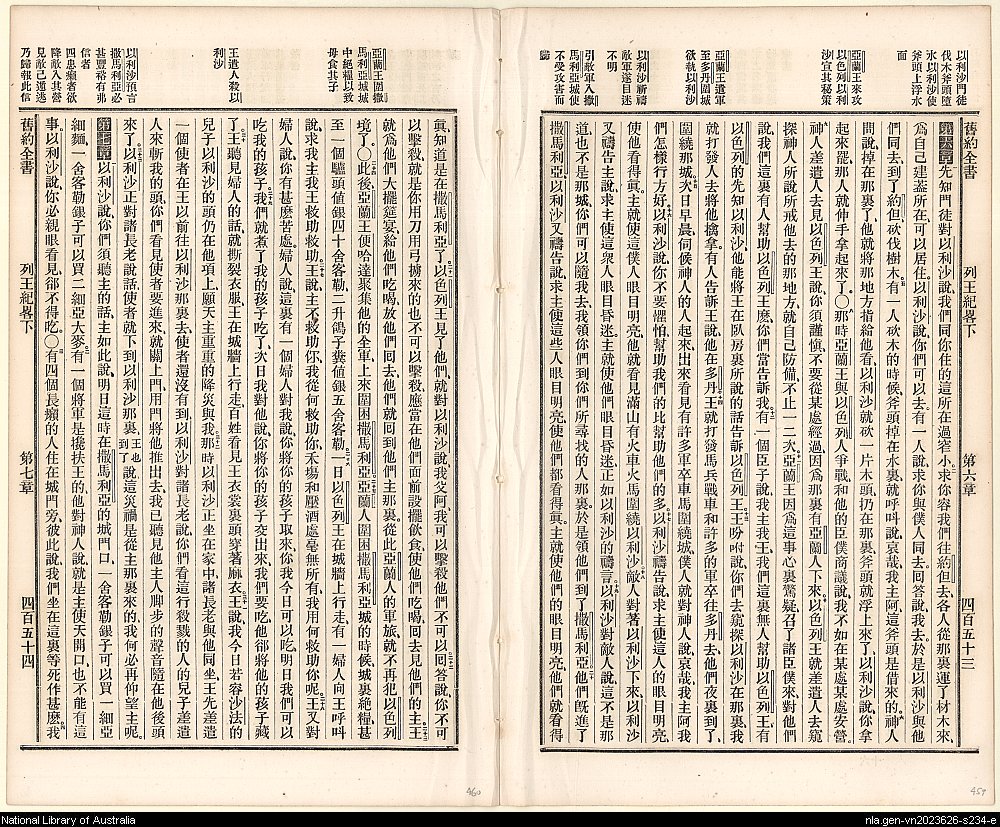 以利沙門徒
伐木斧頭墮
水以利沙使
斧頭上浮水
面
亞蘭王來攻
以色列以利
沙宣其秘策
亞蘭王遣軍
至多丹圍城
欲執以利沙
以利沙祈禱
敵軍遂目迷
不明
引敵軍入撒
馬利亞城使
不受攻害而
歸
舊約全書 列王紀畧下 第六章 四百五十三
第六章先知門徒對以利沙說、我們同你住的這所在過窄小、求你容我們往約但去、各人從那裏運了材木來、
爲自己建葢所在、可以居住、以利沙說、你們可以去。有一人說、求你與僕人同去、回答說、我去、於是以利沙與他
們同去、到了約但、砍伐樹木。有一人砍木的時候、斧頭掉在水裏、就呼叫說、哀哉我主阿、這斧頭是借來的。神人
問說、掉在那裏了、他就將那地方指給他看、以利沙就砍一片木頭、扔在那裏、斧頭就浮上來了。以利沙說、你拿
起來罷、那人就伸手拿起來了。〇那時亞蘭王與以色列人爭戰、和他的臣僕商議、說、我不如在某處某處安營。
神人差遣人去見以色列王說、你須謹愼、不要從某處經過、因爲那裏有亞蘭人下來。以色列王就差遣人去窺
探神人所說所戒他去的那地方、就自己防備不止一二次。亞蘭王因爲這事心裏驚疑、召了諸臣僕來、對他們
說、我們這裏有人幫助以色列王麼、你們當吿訴我。有一個臣子說、我主我王、我們這裏無人幫助以色列王、有
以色列的先知以利沙、他能將王在臥房裏所說的話吿訴以色列王。王吩咐說、你們去窺探以利沙在那裏、我
就打發人去將他擒拿。有人吿訴王說、他在多丹。王就打發馬兵戰車和許多的軍卒往多丹去、他們夜裏到了、
圍繞那城。次日早晨、伺候神人的人起來、出來看見有許多軍卒車馬圍繞城、僕人就對神人說、哀哉我主阿、我
們怎樣行方好。以利沙說、你不要懼怕、幫助我們的比幫助他們的多。以利沙禱吿說、求主使這人的眼目明亮、
使他看得眞、主就使這僕人眼目明亮、他就看見滿山有火車火馬圍繞以利沙。敵人對著以利沙下來、以利沙
又禱吿說、求主使這衆人眼目昏迷、主就使他們眼目昏迷、正如以利沙的禱言。以利沙對敵人說、這不是那
道、也不是那城、你們可以隨我去、我領你們到你們所尋找的人那裏、於是領他們到了撒馬利亞。他們旣進了
撒馬利亞、以利沙又禱吿說、求主使這些人眼目明亮、使他們都看得眞、主就使他們的眼目明亮、他們就看得
以利沙預言
撒馬利亞必
甚豐裕有弗
信者
四患癩者欲
降敵入其營
見敵已遁逃
乃歸報此信
王遣人殺以
利沙
亞蘭王圍撒
馬利亞城城
中絕糧以致
母食其子
眞、知道是在撒馬利亞了。以色列王見了他們、就對以利沙說、我父阿、我可以擊殺他們不可以。回答說、你不可
以擊殺、就是你用刀用弓擄來的、也不可以擊殺、應當在他們面前設擺飮食、使他們吃喝、回去見他們的主。王
就爲他們大擺筵宴、給他們吃喝、放他們回去、他們就回到他們主那裏、從此亞蘭人的軍旅就不再犯以色列
境了。〇此後亞蘭王便哈達聚集他的全軍、上來圍困撒馬利亞。亞蘭人圍困撒馬利亞城的時候、城裏絕糧、甚
至一個驢頭値銀四十舍客勒、二升鴿子糞値銀五舍客勒。一日以色列王在城牆上行走、有一婦人向王呼叫
說、求我主我王救助救助。王說、主不救助你、我從何救助你、禾塲和壓酒處毫無所有、我用何救助你呢。王又對
婦人說、你有甚麼苦處、婦人說、這裏有一個婦人對我說、你將你的孩子取來、你我今日可以吃、明日我們可以
吃我的孩子。我們就煮了我的孩子吃了、次日我對他說、你將你的孩子交出來、我們要吃、他卻將他的孩子藏
了。王聽見婦人的話、就撕裂衣服、王在城牆上行走、百姓看見王衣裳裏頭穿著麻衣。王說、我今日若容沙法的
兒子以利沙的頭仍在他項上、願天主重重的降災與我。那時以利沙正坐在家中、諸長老與他同坐、王先差遣
一個使者、在王以前往以利沙那裏去、使者還沒有到、以利沙對諸長老說、你們看這行殺戮的人的兒子差遣
人來斬我的頭、你們看見使者要進來、就關上門、用門將他推出去、我已聽見他主人脚步的聲音隨在他後頭
來了。以利沙正對諸長老說話、使者就下到以利沙那裏、王也到了說、這災禍是從主那裏來的、我何必再仰望主呢、
第七章以利沙說、你們須聽主的話、主如此說、明日這時在撒馬利亞的城門口、一舍客勒銀子可以買一細亞
細麵、一舍客勒銀子可以買二細亞大麥。有一個將軍是攙扶王的、他對神人說、就是主使天開口、也不能有這
事、以利沙說、你必親眼看見、卻不得吃。〇有四個長癩的人住在城門旁、彼此說、我們坐在這裏等死作甚麼。我
舊約全書 列王紀畧下 第七章 四百五十四
460
459
National Library of Australia
nla.gen-vn2023626-s234-e